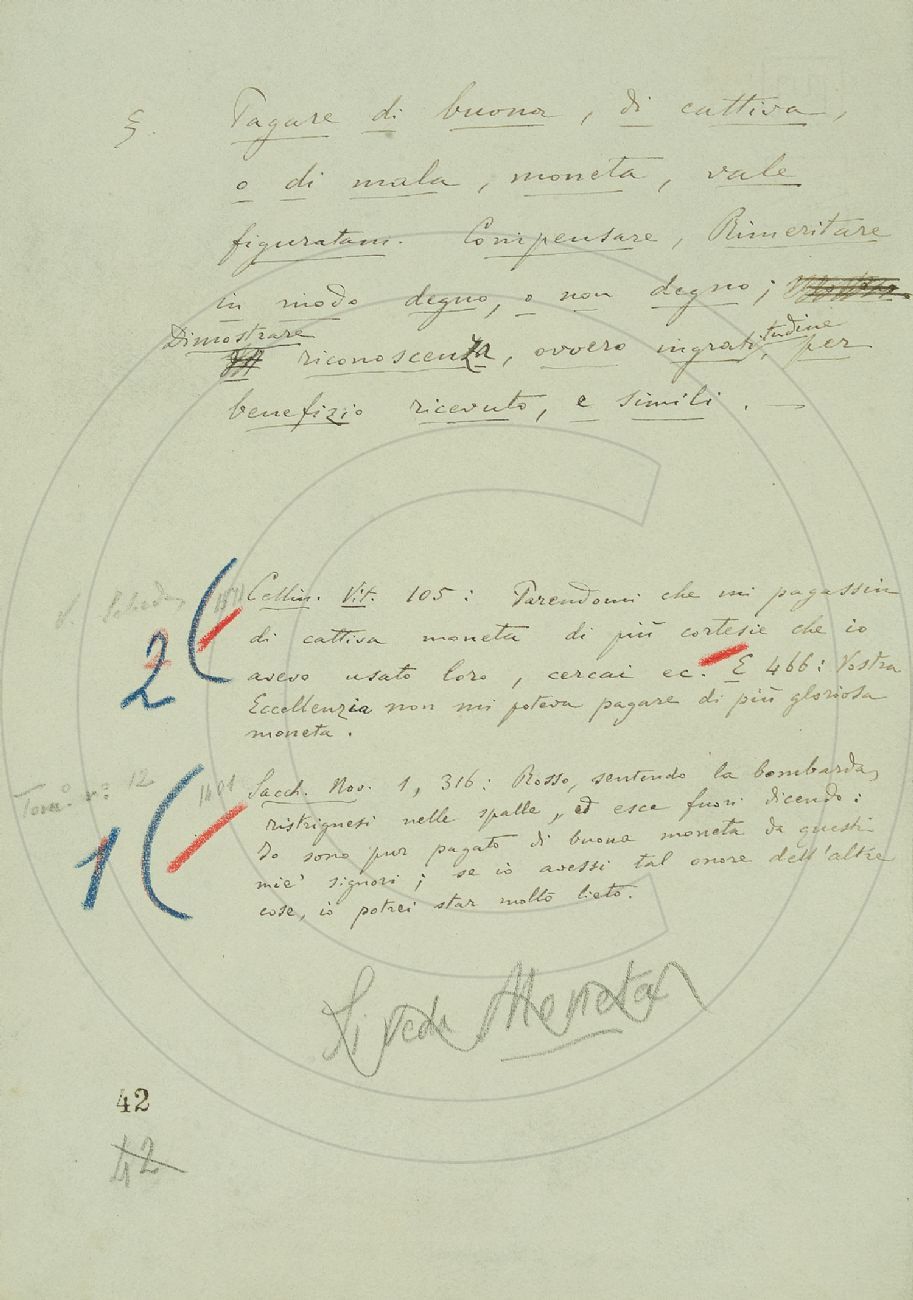 §. Pagare di buona, di cattiva,
o di mala, moneta, vale
figuratam. Compensare, Rimeritare
in modo degno, o non degno;
Dimostrare
riconoscenza, ovvero ingratitudine, per
benefizio ricevuto, e simili. —
V. Scheda
2 Cellin. Vit. 105: Parendomi che mi pagassin
di cattiva moneta di più cortesie che io
avevo usato loro, cercai ec. E 466: Vostra
Eccellenzia non mi poteva pagare di più gloriosa
moneta.
Torn.° n.° 12
1401
1 Sacch. Nov. 1, 316: Rosso, sentendo la bombarda,
ristrignesi nelle spalle, ed esce fuori dicendo:
Io sono pur pagato di buona moneta da questi
mie' signori; se io avessi tal onore dell'altre
cose, io potrei star molto lieto.
Si veda Moneta
42
42